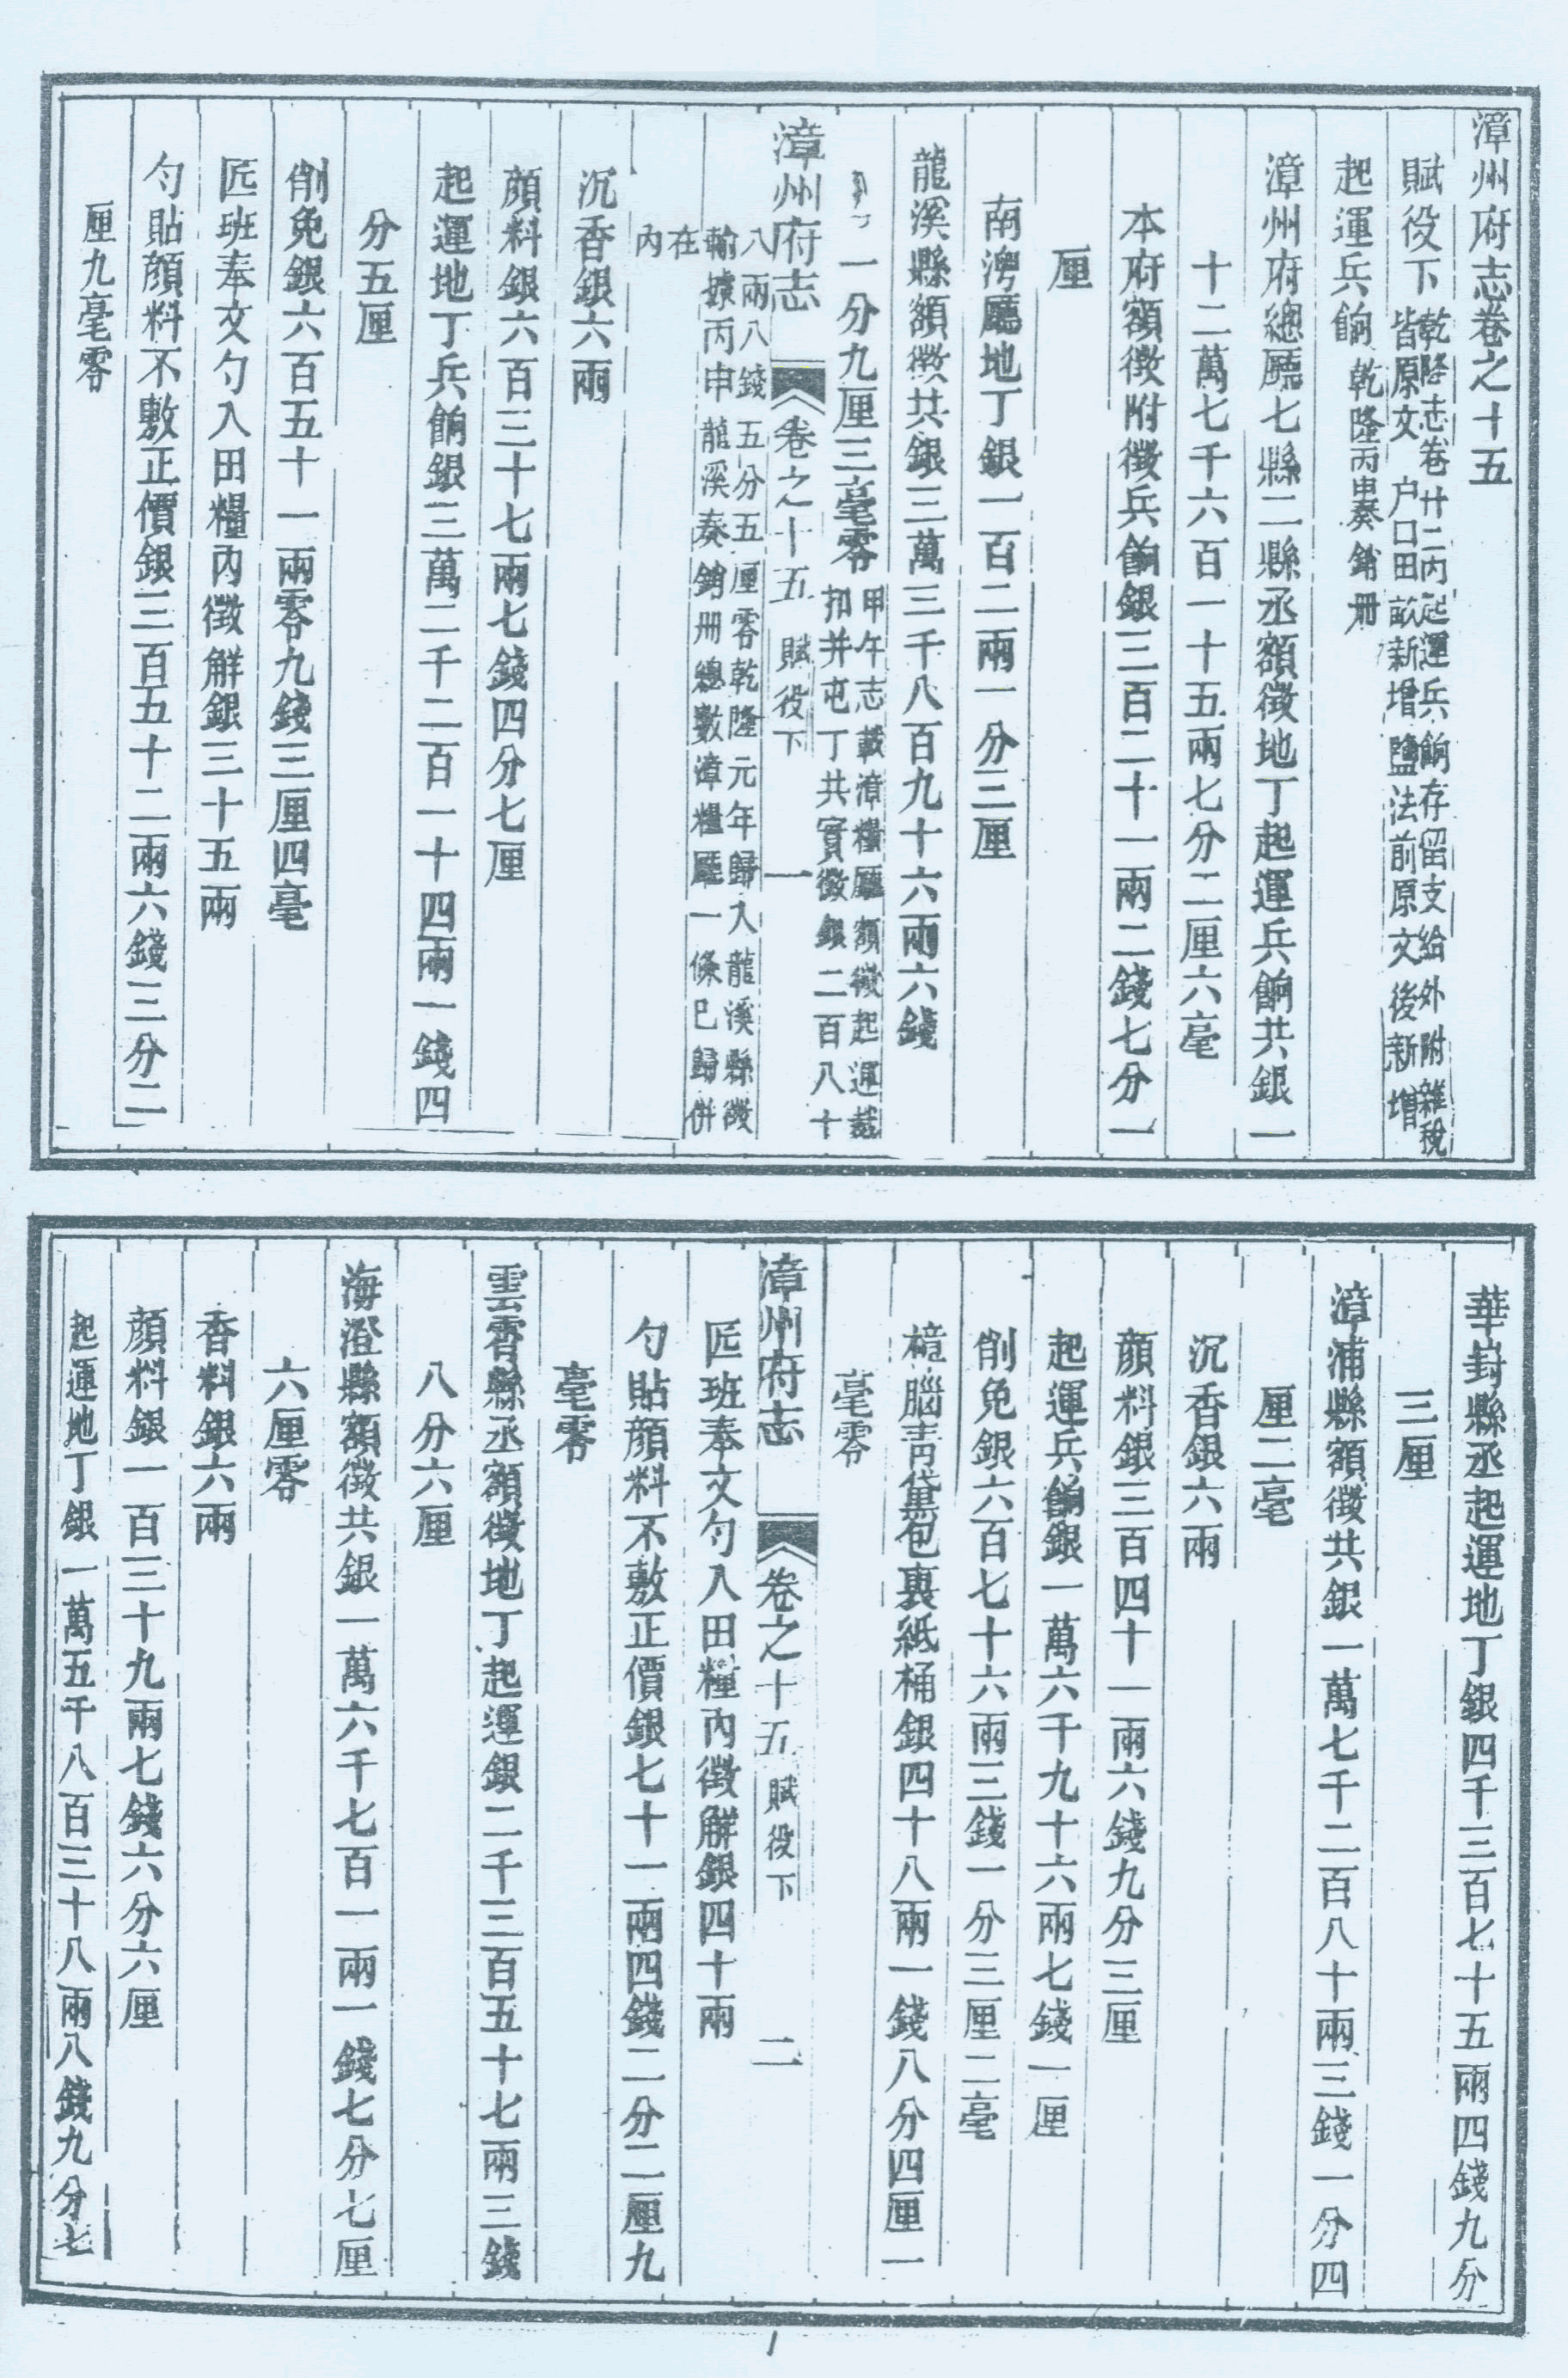 漳州府志卷之十五
賦役下
乾隆志卷廿二內起運兵餉存留支給外附雜稅
皆原文 户口田畝新增鹽法前原文後新增
起運兵餉 乾隆丙申奏銷册
漳州府總廳七縣二縣丞額徵地丁起運兵餉共銀一
十二萬七千六百一十五兩七分二厘六毫
本府額徵附徵兵餉銀三百二十一兩二錢七分一
厘
南澚廳地丁銀一百二兩一分三厘
龍溪縣額徵共銀三萬三千八百九十六兩六錢
一分九厘三毫零
甲午志載漳糧廳額徵起運裁
扣并屯丁共實徵銀二百八十
漳州府志 卷之十五 賦役下 一
八兩八錢五分五厘零乾隆元年歸入龍溪縣徵
輸據丙申龍溪奏銷册總數漳糧廳一條已歸併
在
內
沉香銀六兩
顏料銀六百三十七兩七錢四分七厘
起運地丁兵餉銀三萬二千二百一十四兩一錢四
分五厘
削免銀六百五十一兩零九錢三厘四毫
匠班奉文勻入田糧內徵解銀三十五兩
勻貼顏料不敷正價銀三百五十二兩六錢三分二
厘九毫零
華葑縣丞起運地丁銀四千三百七十五兩四錢九分
三厘
漳浦縣額徵共銀一萬七千二百八十兩三錢一分四
厘二毫
沉香銀六兩
顏料銀三百四十一兩六錢九分三厘
起運兵餉銀一萬六千九十六兩七錢一厘
削免銀六百七十六兩三錢一分三厘二毫
樟腦青黛包裹紙桶銀四十八兩一錢八分四厘一
毫零
漳州府志 卷之十五 賦役下 二
匠班奉文勻入田糧內徵解銀四十兩
勻貼顏料不敷正價銀七十一兩四錢二分二厘九
毫零
雲霄縣丞額徵地丁起運銀二千三百五十七兩三錢
八分六厘
海澄縣額徵共銀一萬六千七百一兩一錢七分七厘
六厘零
香料銀六兩
顏料銀一百三十九兩七錢六分六厘
起運地丁銀一萬五千八百三十八兩八錢九分七
1